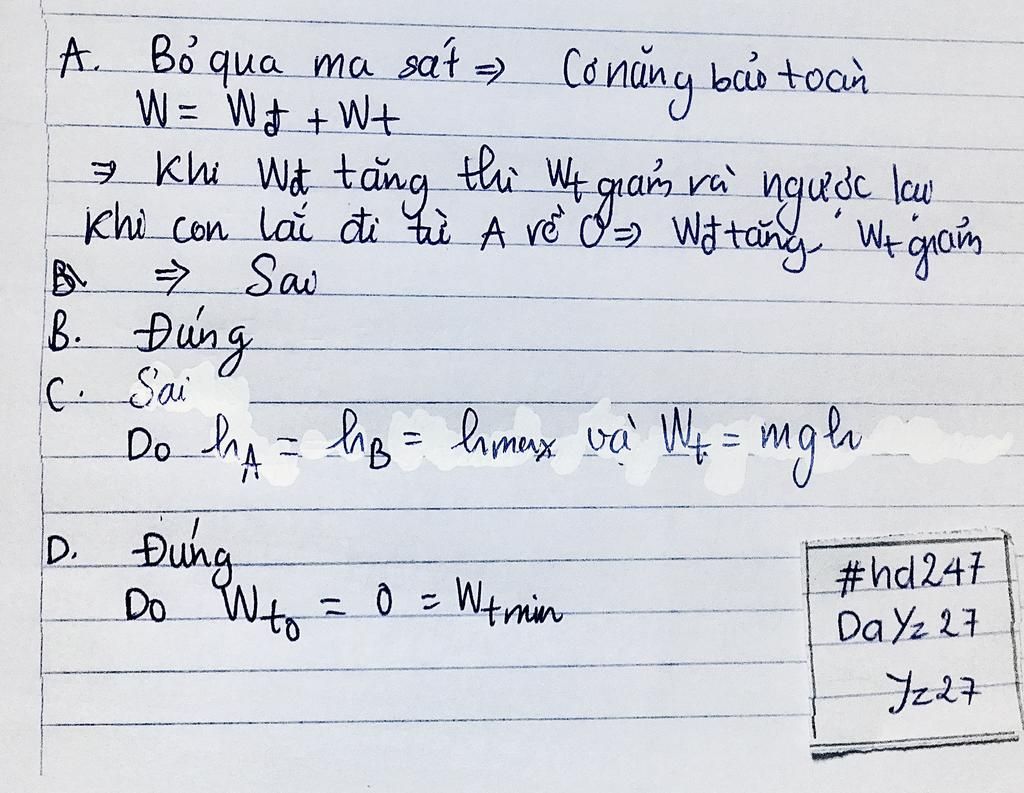 A. Bỏ qua ma sát => Cơ năng bảo toàn
W = Wđ + Wt
=> Khi Wđ tăng thì Wt giảm và ngược lại
Khi con lắc đi từ A về O => Wđ tăng, Wt giảm
=> Sai
B. Đúng
C. Sai
Do hA = hB = hmax và Wt = mgh
D. Đúng
Do Wt0 = 0 = Wtmin
#hd247
DaYz27
Yz27